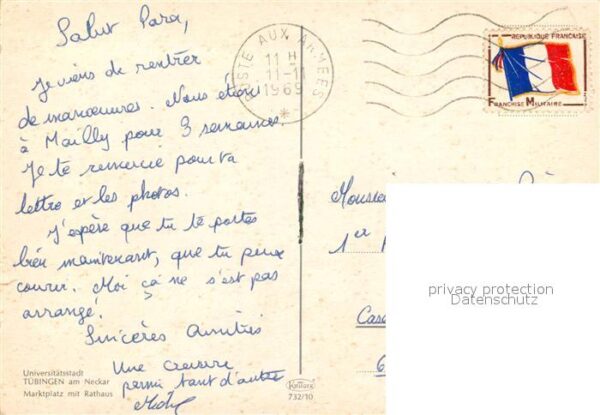 Salut Para,
Je viens de rentrer
de manoeuvres. Nous étions
à Mailly pour 3 semaines.
Je te remercie pour ta
lettre et les photos.
J'espère que tu te portes
bien maintenant, que tu peux
courir. Moi ça ne s'est pas
arrangé!
Sincères Amitiés
Une
parmi tant d'autre
POSTE AUX ARMEES
11 H
11-11
1969
*
REPUBLIQUE FRANÇAISE
FRANCHISE MILITAIRE
Monsieur
1er
privacy protection
Datenschutz
Universitätsstadt
TÜBINGEN am Neckar
Marktplatz mit Rathaus
732/10